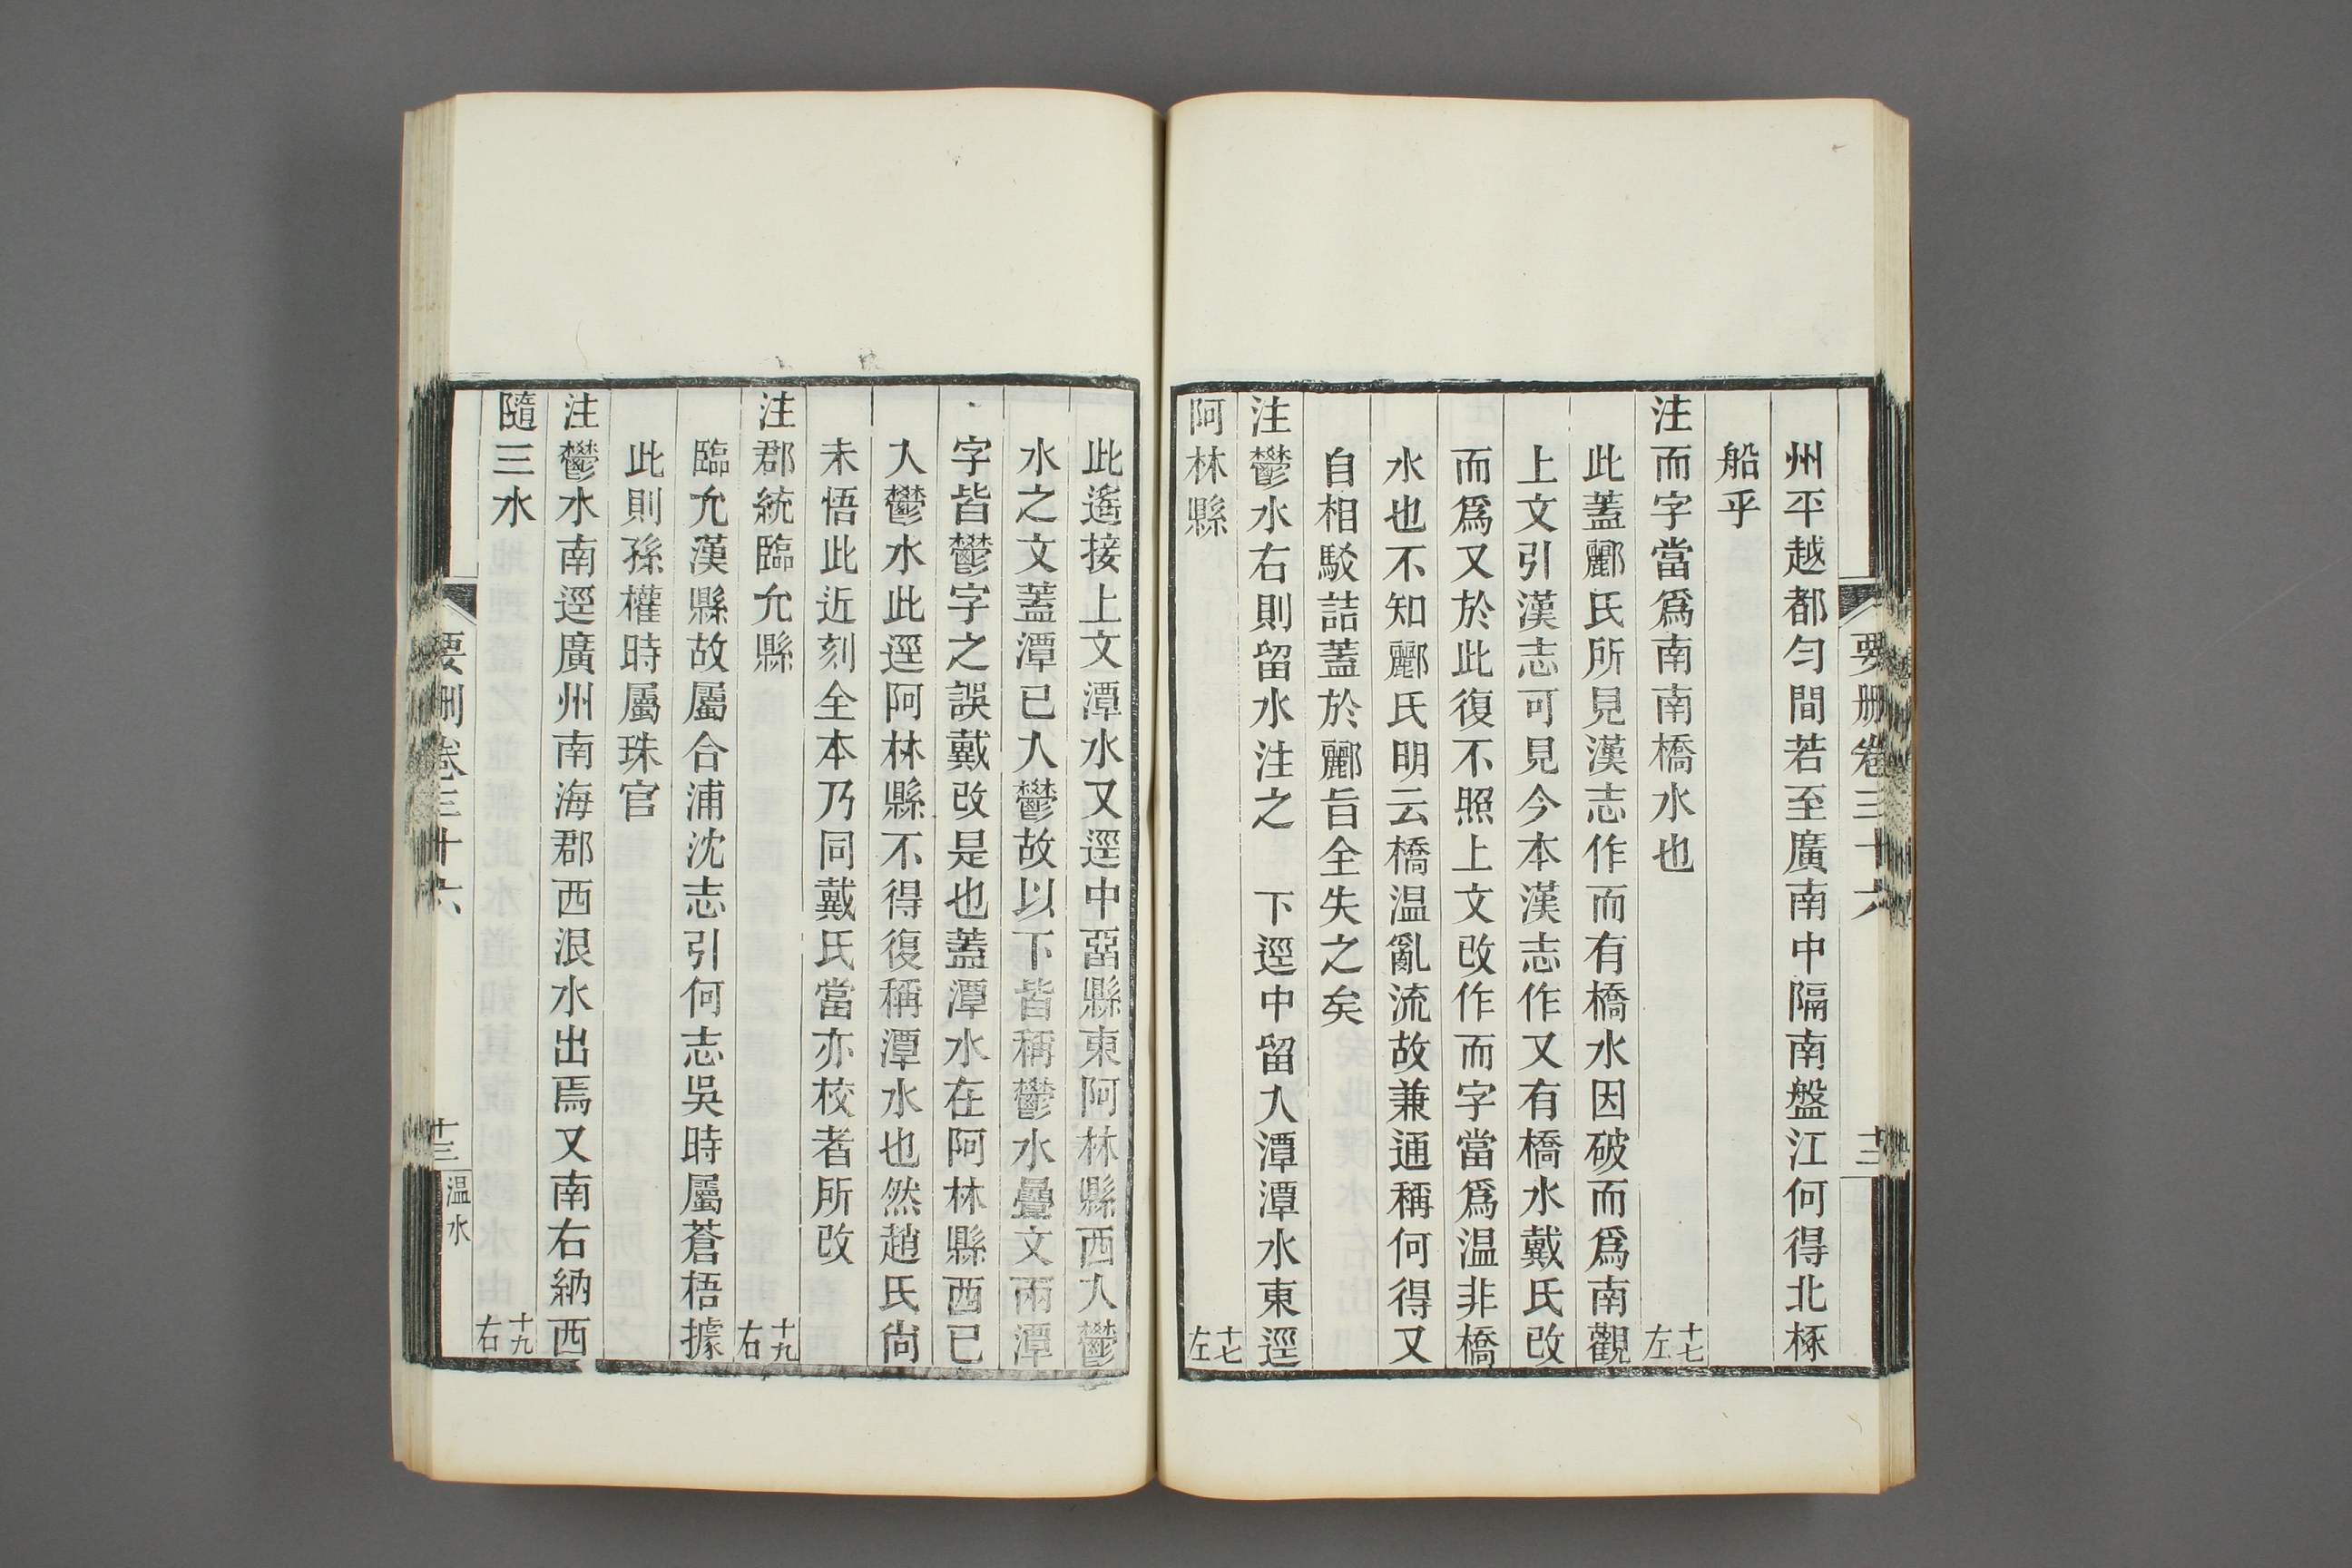 要刪卷三十六
十二
州平越都勻間若至廣南中隔南盤江何得北椓
船乎
注而字當爲南南橋水也 十七左
此蓋酈氏所見漢志作而有橋水因破而爲南觀
上文引漢志可見今本漢志作又有橋水戴氏改
而爲又於此復不照上文改作而字當爲温非橋
水也不知酈氏明云橋温亂流故兼通稱何得又
自相駁詰蓋於酈旨全失之矣
注鬱水右則留水注之 下逕中留入潭潭水東逕
阿林縣 十七左
此遙接上文潭水又逕中畱縣東阿林縣西入鬱
水之文蓋潭已入鬱故以下皆稱鬱水疊文兩潭
字皆鬱字之誤戴改是也蓋潭水在阿林縣西已
入鬱水此逕阿林縣不得復稱潭水也然趙氏尙
未悟此近刻全本乃同戴氏當亦校者所改
注郡統臨允縣 十九右
臨允漢縣故屬合浦沈志引何志吳時屬蒼梧據
此則孫權時屬珠官
注鬱水南逕廣州南海郡西浪水出焉又南右納西
隨三水 十九右
要刪卷三十六
十三
温水